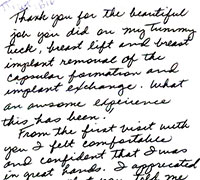 Thank you for the beautiful
job you did on my tummy
tuck, breast lift and breast
implant removal of the
capsular formation and
implant exchange. What
an awsome expeirence
this has been.
From the first visit with
you I felt comfortable
and confident that I was
in great hands. I apprecated
what you told me